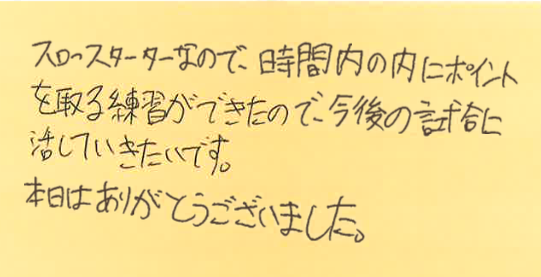 スロースターターなので、時間内の内にポイント
を取る練習ができたので、今後の試合に
活していきたいです。
本日はありがとうございました。